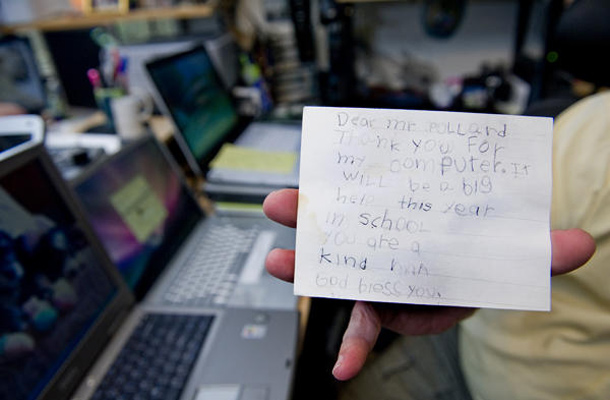 Dear mr POLLARD
Thank you For
my computer. It
WILL be a big
help this year
in school
You are a
kind man
God bless you.